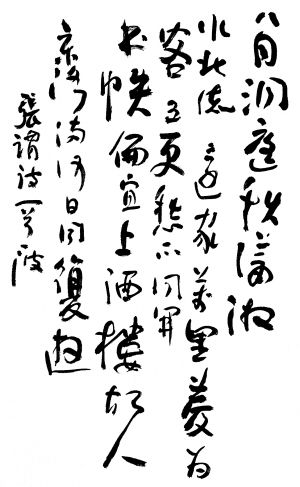 八月洞庭秋瀟湘
水北流還家萬里夢為
客五更愁不用開
書帙偏宜上酒樓故人
京洛滿何日同復遊
張謂詩一首波